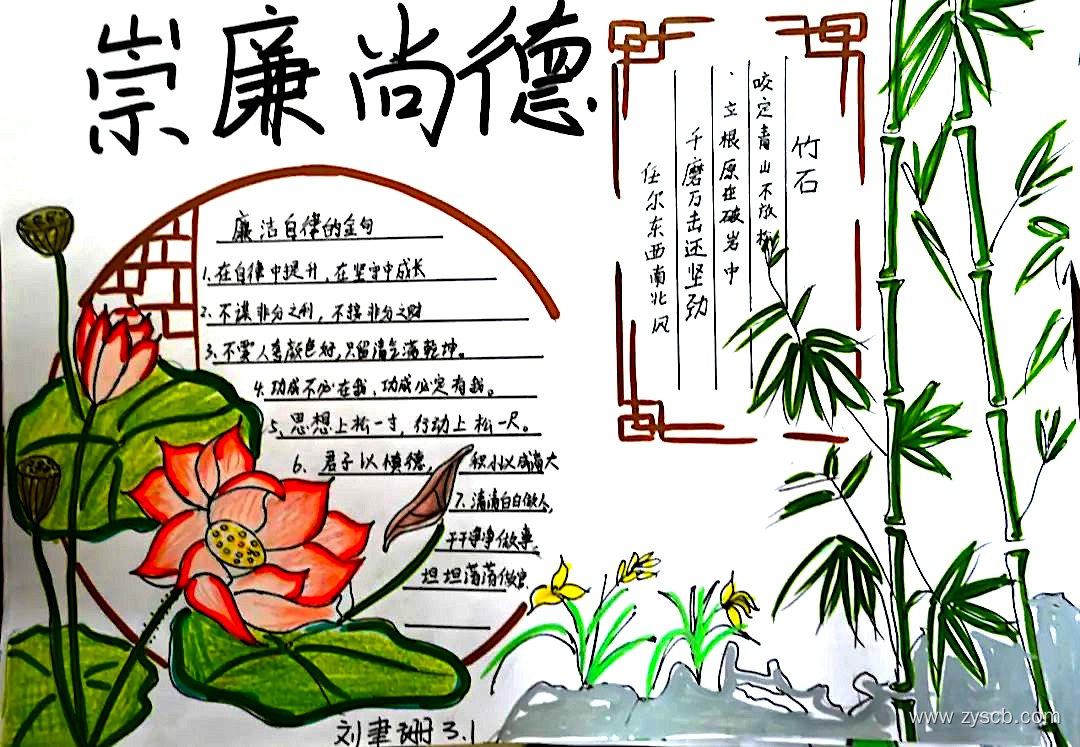 崇廉尚德
竹石
咬定青山不放松
、立根原在破岩中
千磨万击还坚劲
任尔东西南北风
廉洁自律的金句
1.在自律中提升,在坚守中成长
2.不谋非分之利,不接非分之财
3.不要人夸颜色好,只留清气满乾坤。
4.功成不必在我、功成必定有我。
5、思想上松一寸,行动上松一尺。
6、君子以慎德,积小以成高大
7.清清白白做人,
干干净净做事。
坦坦荡荡做官
刘聿珊3.1
www.zyscb.com